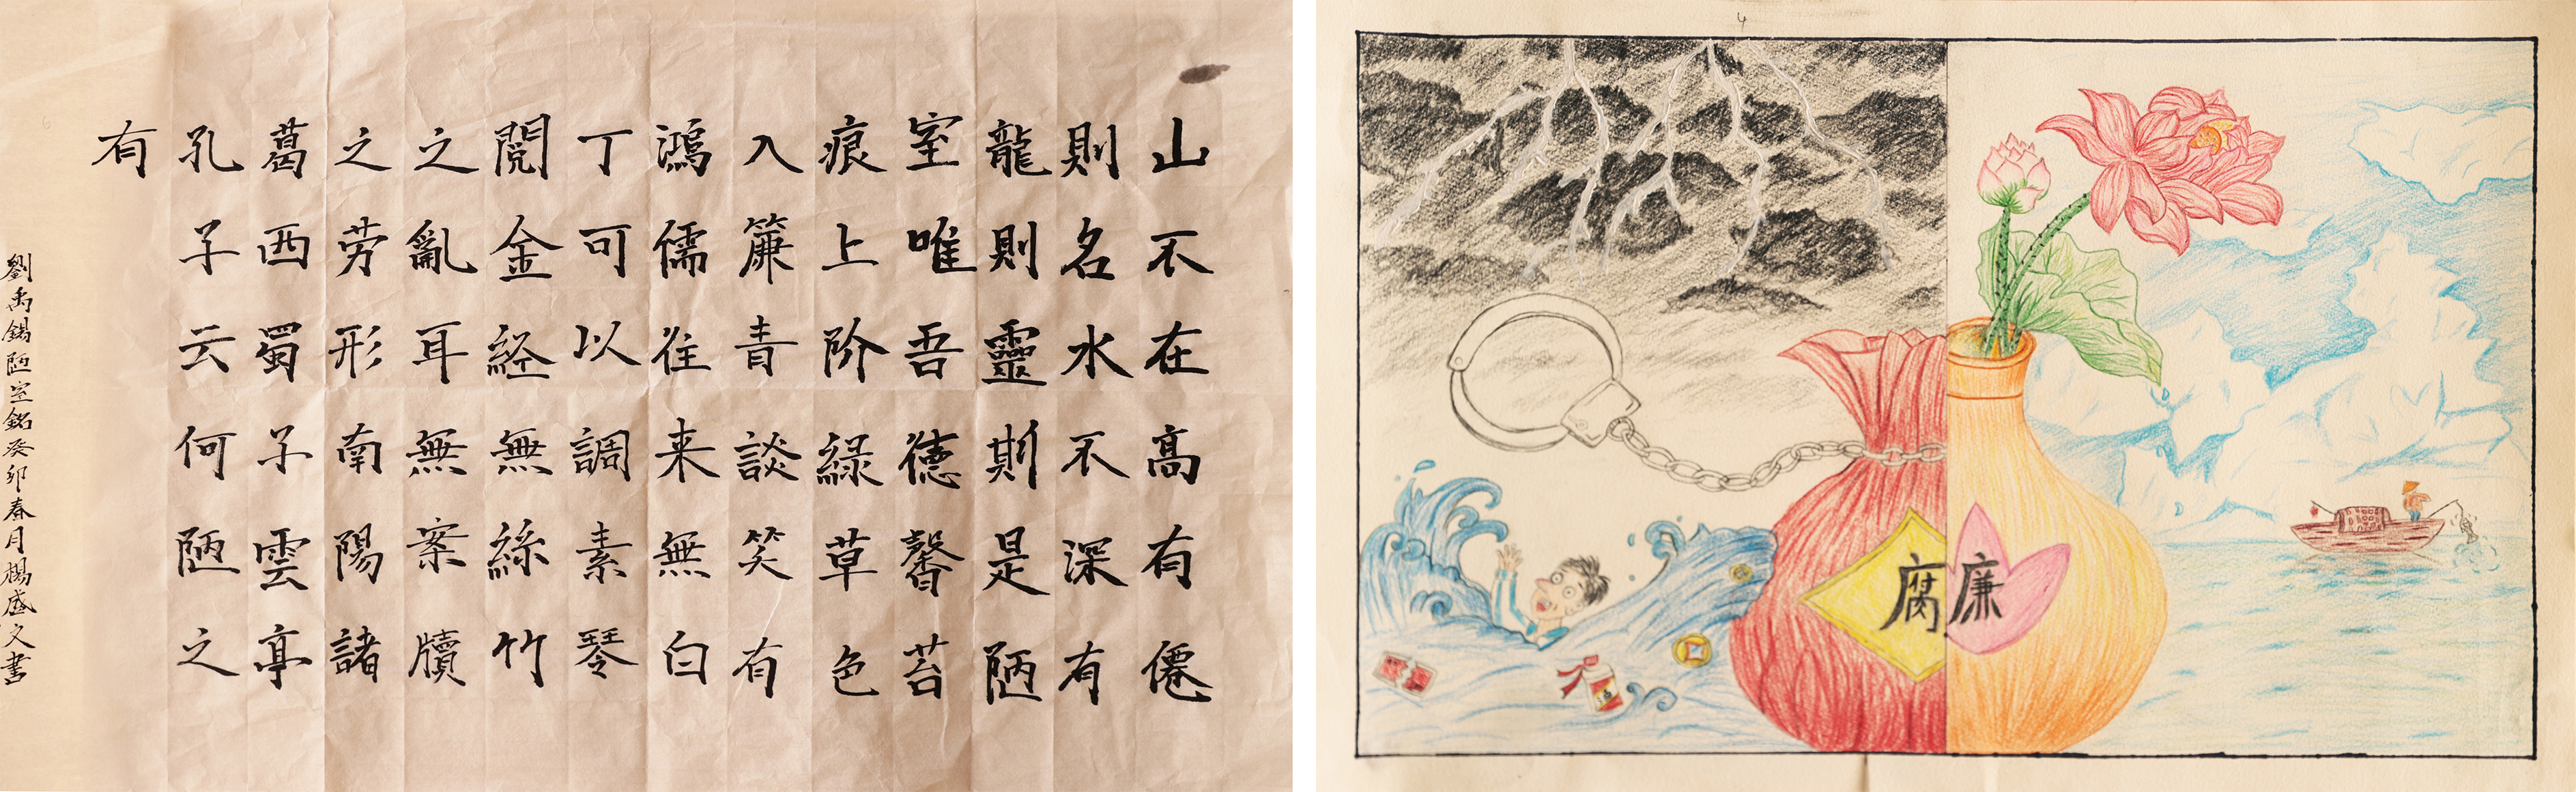 山不在高有僊
則名水不深有
龍則靈則是陋
室唯吾德馨苔
痕上阶綠草色
入簾青談笑有
鴻儒往来無白
丁可以調素琴
閱金経無絲竹
之亂耳無案牘
之劳形南陽諸
葛西蜀子雲亭
孔子云何陋之
有
劉禹錫陋室銘癸卯春月楊盛文書
4
腐
廉